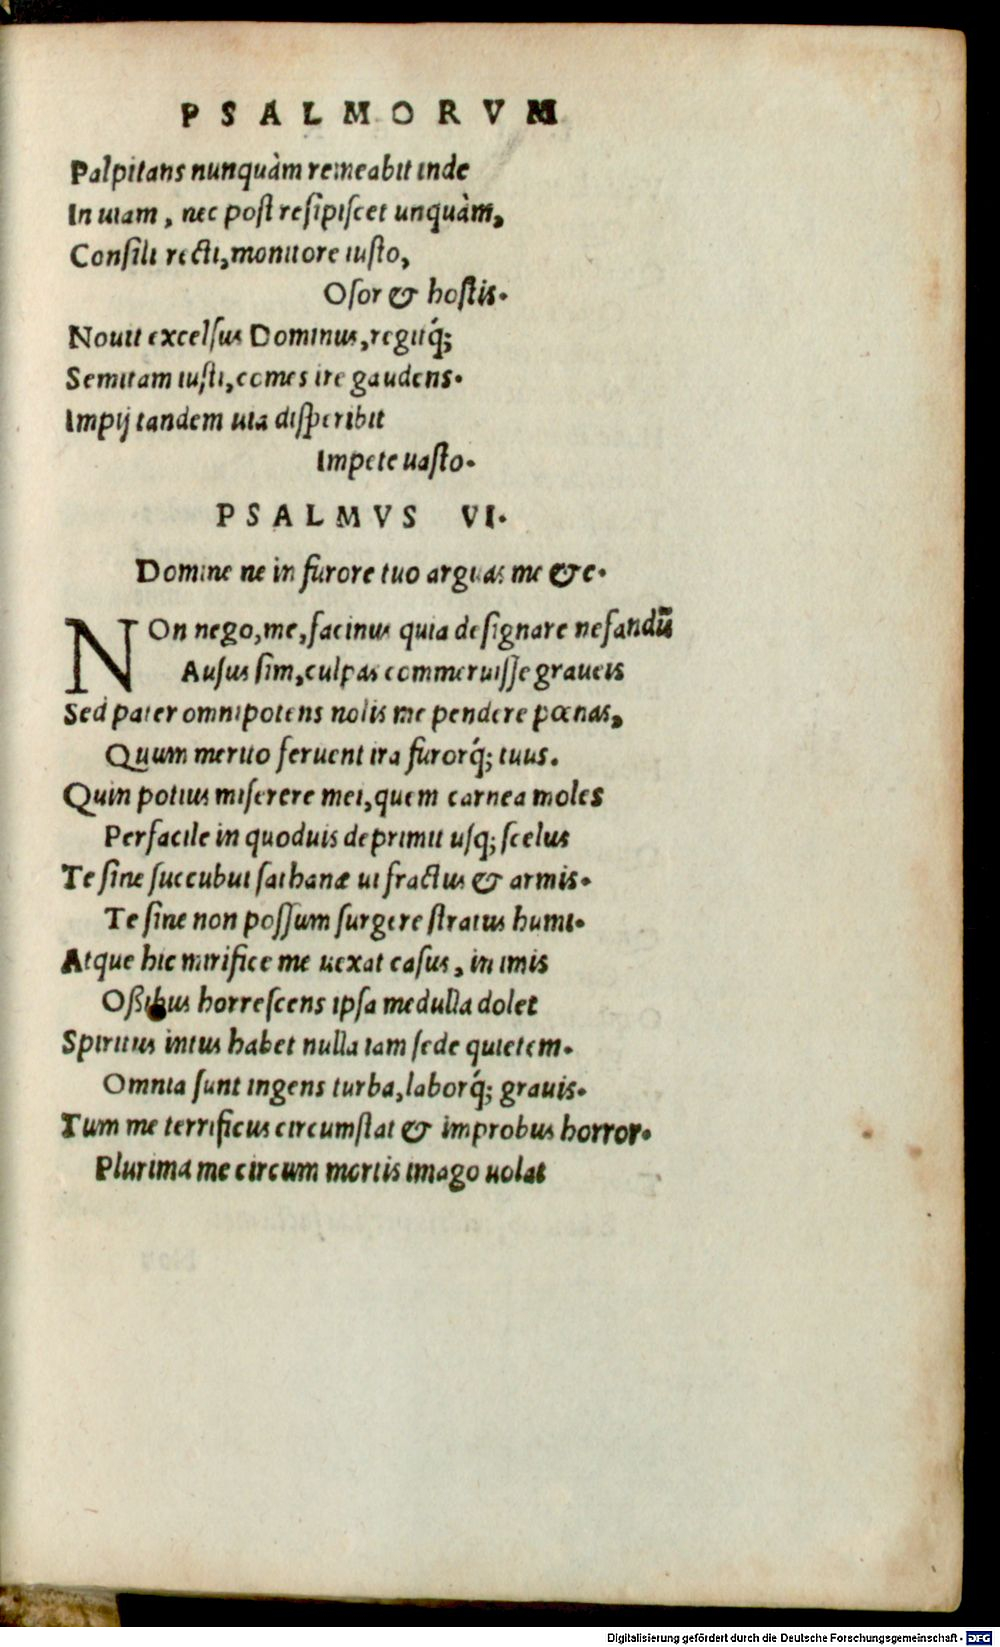 PSALMORVM
Palpitans nunquàm remeabit inde
In uiam, nec post resipiscet unquàm,
Consili recti, monitore iusto,
Osor & hostis.
Nouit excelsus Dominus, regitq́;
Semitam iusti, comes ire gaudens.
Impij tandem uia disperibit
Impete uasto.
PSALMVS VI.
Domine ne in furore tuo arguas me &c.
NOn nego, me, facinus quia designare nefandū
Ausus sim, culpas commeruisse graueis
Sed pater omnipotens nolis me pendere pœnas,
Quum merito feruent ira furorq́; tuus.
Quin potius miserere mei, quem carnea moles
Perfacile in quoduis deprimit usq; scelus
Te sine succubui sathanæ ui fractus & armis.
Te sine non possum surgere stratus humi.
Atque hic mirifice me uexat casus, in imis
Oßibus horrescens ipsa medulla dolet
Spiritus intus habet nulla iam sede quietem.
Omnia sunt ingens turba, laborq́; grauis.
Tum me terrificus circumstat & improbus horror.
Plurima me circum mortis imago uolat
Digitalisierung gefördert durch die Deutsche Forschungsgemeinschaft - DFG